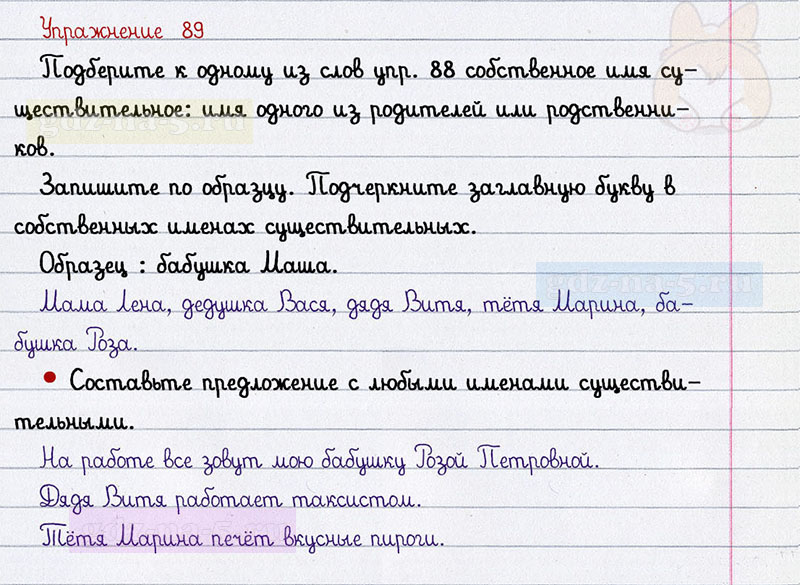 Упражнение 89
Подберите к одному из слов упр. 88 собственное имя су-
ществительное: имя одного из родителей или родственни-
ков.
Запишите по образцу. Подчеркните заглавную букву в
собственных именах существительных.
Образец : бабушка Маша.
gdz-na-5.ru
Мама Лена, дедушка Вася, дядя Витя, тётя Марина, ба-
бушка Роза.
• Составьте предложение с любыми именами существи-
тельными.
На работе все зовут мою бабушку Розой Петровной.
Дядя Витя работает таксистом.
Тётя Марина печёт вкусные пироги.